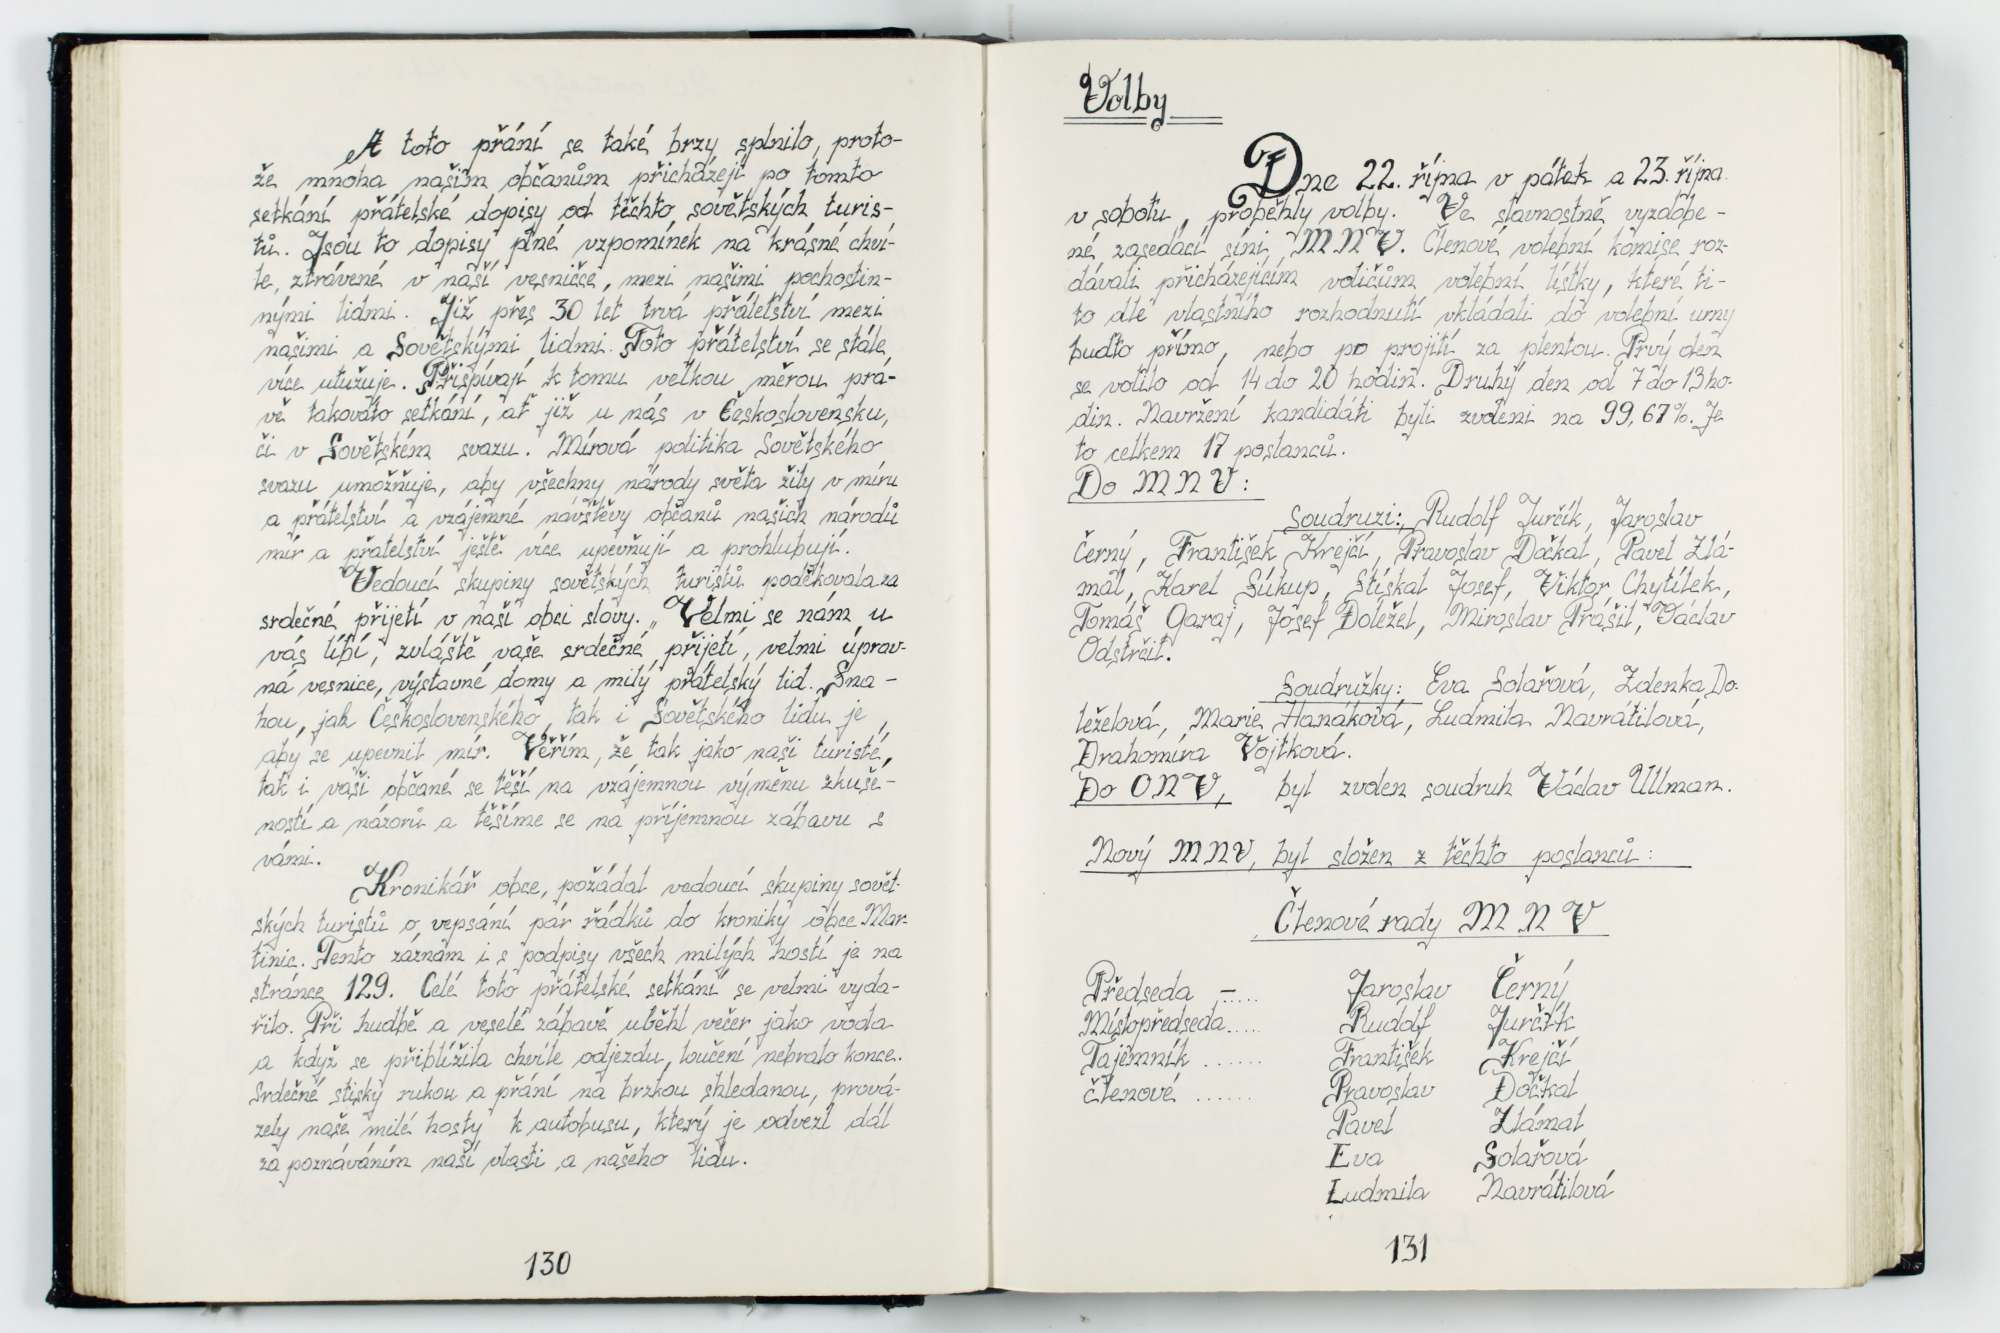 A toto přání se také brzy splnilo, proto-
že mnoha našim občanům přicházejí po tomto
setkání přátelské dopisy od těchto sovětských turis-
tů. Jsou to dopisy plné vzpomínek na krásné chví-
le, ztrávené v naší vesničše, mezi našimi pohostin-
nými lidmi. Již přes 30 let trvá přátelství mezi
našimi a Sovětskými lidmi. Toto přátelství se stále
více utužuje. Přispívají k tomu velkou měrou pra-
vě takováto setkání, ať již u nás v Československu,
či v Sovětském svazu. Mírová politika Sovětského
svazu umožňuje, aby všechny národy světa žily v míru
a přátelství a vzájemné návštěvy občanů našich národů
mír a přatelství ještě více upevňují a prohlubují.
Vedoucí skupiny sovětských turistů poděkovala za
srdečné přijetí v naší obci slovy. „Velmi se nám u
vás líbí, zvláště vaše srdečné přijetí, velmi úprav-
ná vesnice, výstavné domy a milý přátelský lid. Sna-
hou, jak Československého, tak i Sovětského lidu je,
aby se upevnil mír. Věřím, že tak jako naši turisté,
tak i vaši občané se těší na vzájemnou výměnu zkuše-
ností a názorů a těšíme se na příjemnou zábavu s
vámi.
Kronikář obce, požádal vedoucí skupiny sovět-
ských turistů o vepsání pár řádků do kroniky obce Mar-
tinic. Tento záznam i s podpisy všech milých hostí je na
stránce 129. Celé toto přátelské setkání se velmi vyda-
řilo. Při hudbě a veselé zábavě uběhl večer jako voda
a když se přiblížila chvíle odjezdu, loučení nebralo konce.
Srdečné stisky rukou a přání na brzkou shledanou, prová-
zely naše milé hosty k autobusu, který je odvezl dál
za poznáváním naší vlasti a našeho lidu.
130
Volby
Dne 22. října v pátek a 23. října
v sobotu, proběhly volby. Ve slavnostně vyzdobe-
né zasedací síni MNV. Členové volební komise roz-
dávali přicházejícím voličům volební lístky, které ti-
to dle vlastního rozhodnutí vkládali do volební urny
buďto přímo, nebo po projití za plentou. Prvý den
se volilo od 14 do 20 hodin. Druhý den od 7 do 13 ho-
din. Navržení kandidáti byli zvoleni na 99,67%. Je
to celkem 17 poslanců.
Do MNV:
Soudruzi: Rudolf Jurčík, Jaroslav
Černý, František Krejčí, Pravoslav Dočkal, Pavel Zlá-
mal, Karel Súkup, Stískal Josef, Viktor Chytílek,
Tomáš Garaj, Josef Doležel, Miroslav Prášil, Václav
Odstrčil.
Soudružky: Eva Solařová, Zdenka Do-
leželová, Marie Hanáková, Ludmila Navrátilová,
Drahomíra Vojtková.
Do ONV, byl zvolen soudruh Václav Ullman.
Nový MNV, byl složen z těchto poslanců:
Členové rady MNV
Předseda –..... Jaroslav Černý
Místopředseda..... Rudolf Jurčík
Tajemník ...... František Krejčí
členové ...... Pravoslav Dočkal
Pavel Zlámal
Eva Solařová
Ludmila Navrátilová
131